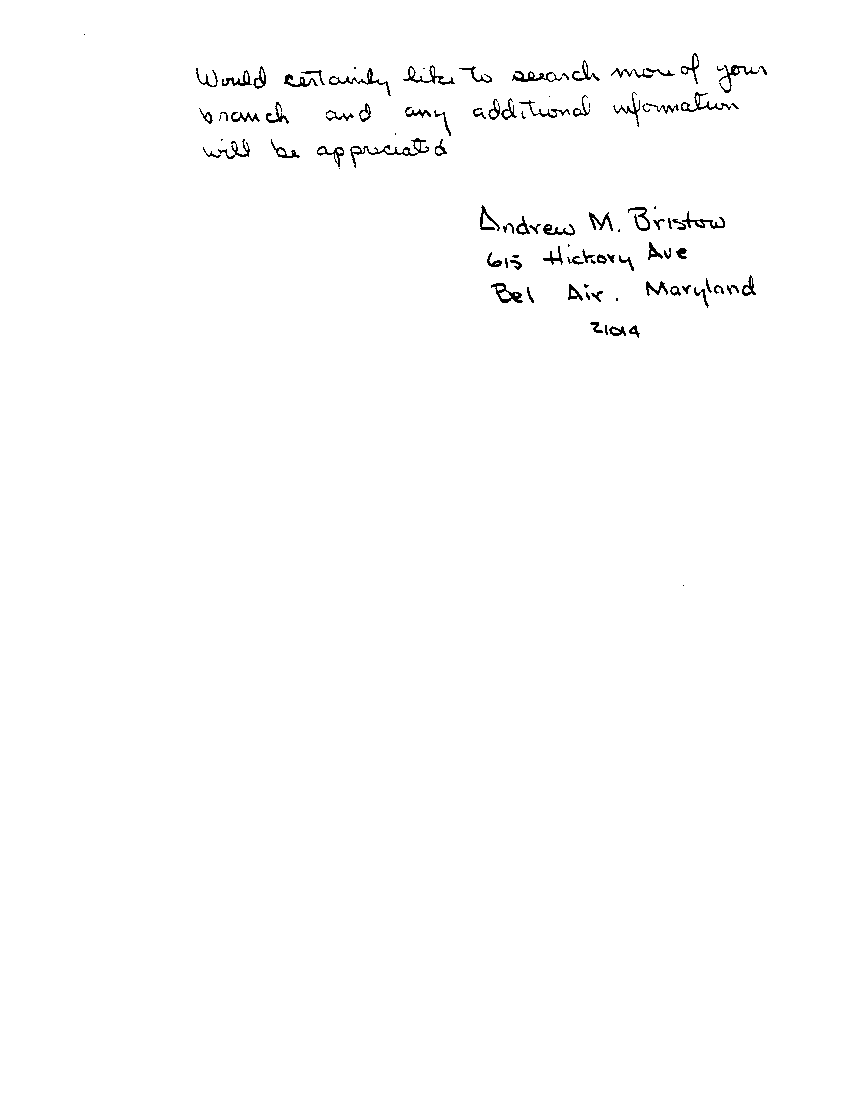 Would certainly like to search more of your
branch and any additional information
will be appreciated
Andrew M. Bristow
615 Hickory Ave
Bel Air, Maryland
21014